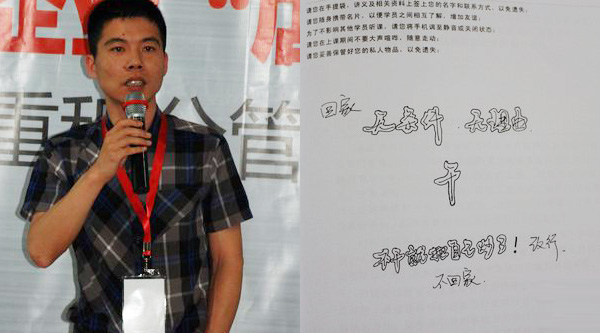 重 分管
请您在手提袋、讲义及相关资料上签上您的名字和联系方式，以免遗失；
请您随身携带名片，以便学员之间相互了解、增加友谊；
为了不影响其他学员听课，请您将手机调至静音或关闭状态；
请您在上课期间不要大声喧哗、随意走动；
请您妥善保管好您的私人物品，以免遗失；
回家
无条件 无理由
干
不干就把自己 了！ 改行.
不回家.